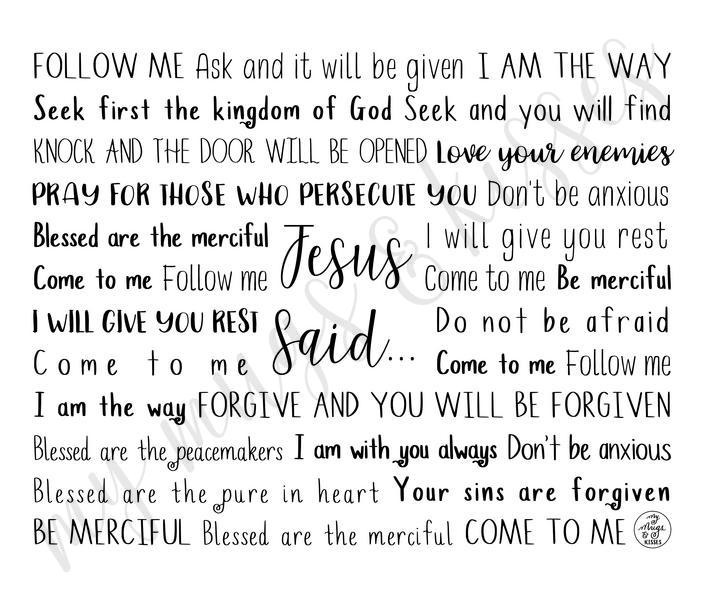 FOLLOW ME Ask and it will be given I AM THE WAY
Seek first the kingdom of God Seek and you will find
KNOCK AND THE DOOR WILL BE OPENED Love your enemies
PRAY FOR THOSE WHO PERSECUTE YOU Don't be anxious
Blessed are the merciful
I will give you rest
Come to me Follow me
Jesus
Come to me Be merciful
I WILL GIVE YOU REST
Do not be afraid
Come to me
Said...
Come to me Follow me
I am the way FORGIVE AND YOU WILL BE FORGIVEN
Blessed are the peacemakers I am with you always Don't be anxious
Blessed are the pure in heart Your sins are forgiven
BE MERCIFUL Blessed are the merciful COME TO ME
my
Mugs
&
KISSES
my mugs & kisses